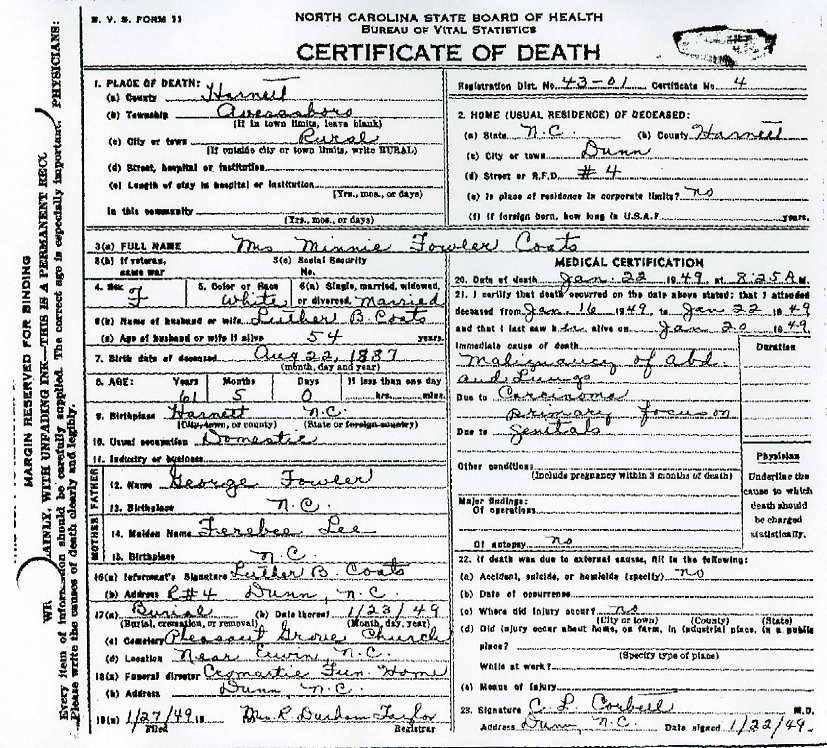 N. V. S. FORM 11
NORTH CAROLINA STATE BOARD OF HEALTH
BUREAU OF VITAL STATISTICS
CERTIFICATE OF DEATH
Registration Dist. No. 43-01 Certificate No. 4
1. PLACE OF DEATH:
(a) County Harnett
(b) Township Averasboro
(If in town limits, leave blank)
(c) City or town Rural
(If outside city or town limits, write RURAL)
(d) Street, hospital or institution
(e) Length of stay in hospital or institution
(Yrs., mos., or days)
In this community
(Yrs., mos., or days)
2. HOME (USUAL RESIDENCE) OF DECEASED:
(a) State N.C. (b) County Harnett
(c) City or town Dunn
(d) Street or R.F.D. #4
(e) Is place of residence in corporate limits? no
(f) If foreign born, how long in U.S.A.? years.
3(a) FULL NAME Mrs Minnie Fowler Coats
3(b) If veteran, name war
3(c) Social Security No.
4. Sex F
5. Color or Race White
6(a) Single, married, widowed, or divorced, married
6(b) Name of husband or wife Luther B. Coats
(c) Age of husband or wife if alive 54 years.
7. Birth date of deceased Aug 22, 1887
(month, day and year)
8. AGE: Years Months Days If less than one day
61 5 0 hrs. mins.
9. Birthplace Harnett N.C.
(City, town, or county) (State or foreign country)
10. Usual occupation Domestic
11. Industry or business
FATHER
12. Name George Fowler
13. Birthplace N.C.
MOTHER
14. Maiden Name Ferebee Lee
15. Birthplace N.C.
16(a) Informant's Signature Luther B. Coats
(b) Address R#4 Dunn, N.C.
17(a) Burial (b) Date thereof 1/23/49
(Burial, cremation, or removal) (Month, day, year)
(c) Cemetery Pleasant Grove Church
(d) Location Near Erwin N.C.
18(a) Funeral director Cromartie Fun. Home
(b) Address Dunn, N.C.
19(a) 1/27/49 Mrs. R Durham Taylor
Filed Registrar
MEDICAL CERTIFICATION
20. Date of death Jan. 22 1949, at 8:25 A M.
21. I certify that death occurred on the date above stated; that I attended
deceased from Jan. 16 1949, to Jan 22 1949
and that I last saw her alive on Jan 20 1949.
Immediate cause of death Duration
Malignancy of abd.
and Lungs
Due to Carcinoma
primary focus on
Due to genitals
Other conditions
(Include pregnancy within 3 months of death)
Major findings:
Of operations
Of autopsy no
Physician
Underline the
cause to which
death should
be charged
statistically.
22. If death was due to external causes, fill in the following:
(a) Accident, suicide, or homicide (specify) no
(b) Date of occurrence
(c) Where did injury occur? no
(City or town) (County) (State)
(d) Did injury occur about home, on farm, in industrial place, in a public
place?
(Specify type of place)
While at work?
(e) Means of injury
23. Signature C. L. Corbett M.D.
Address Dunn, N.C. Date signed 1/22/49.
MARGIN RESERVED FOR BINDING
WR AINLY, WITH UNFADING INK—THIS IS A PERMANENT RECC
Every item of information should be carefully supplied. The correct age is especially important. PHYSICIANS:
Please write the causes of death clearly and legibly.